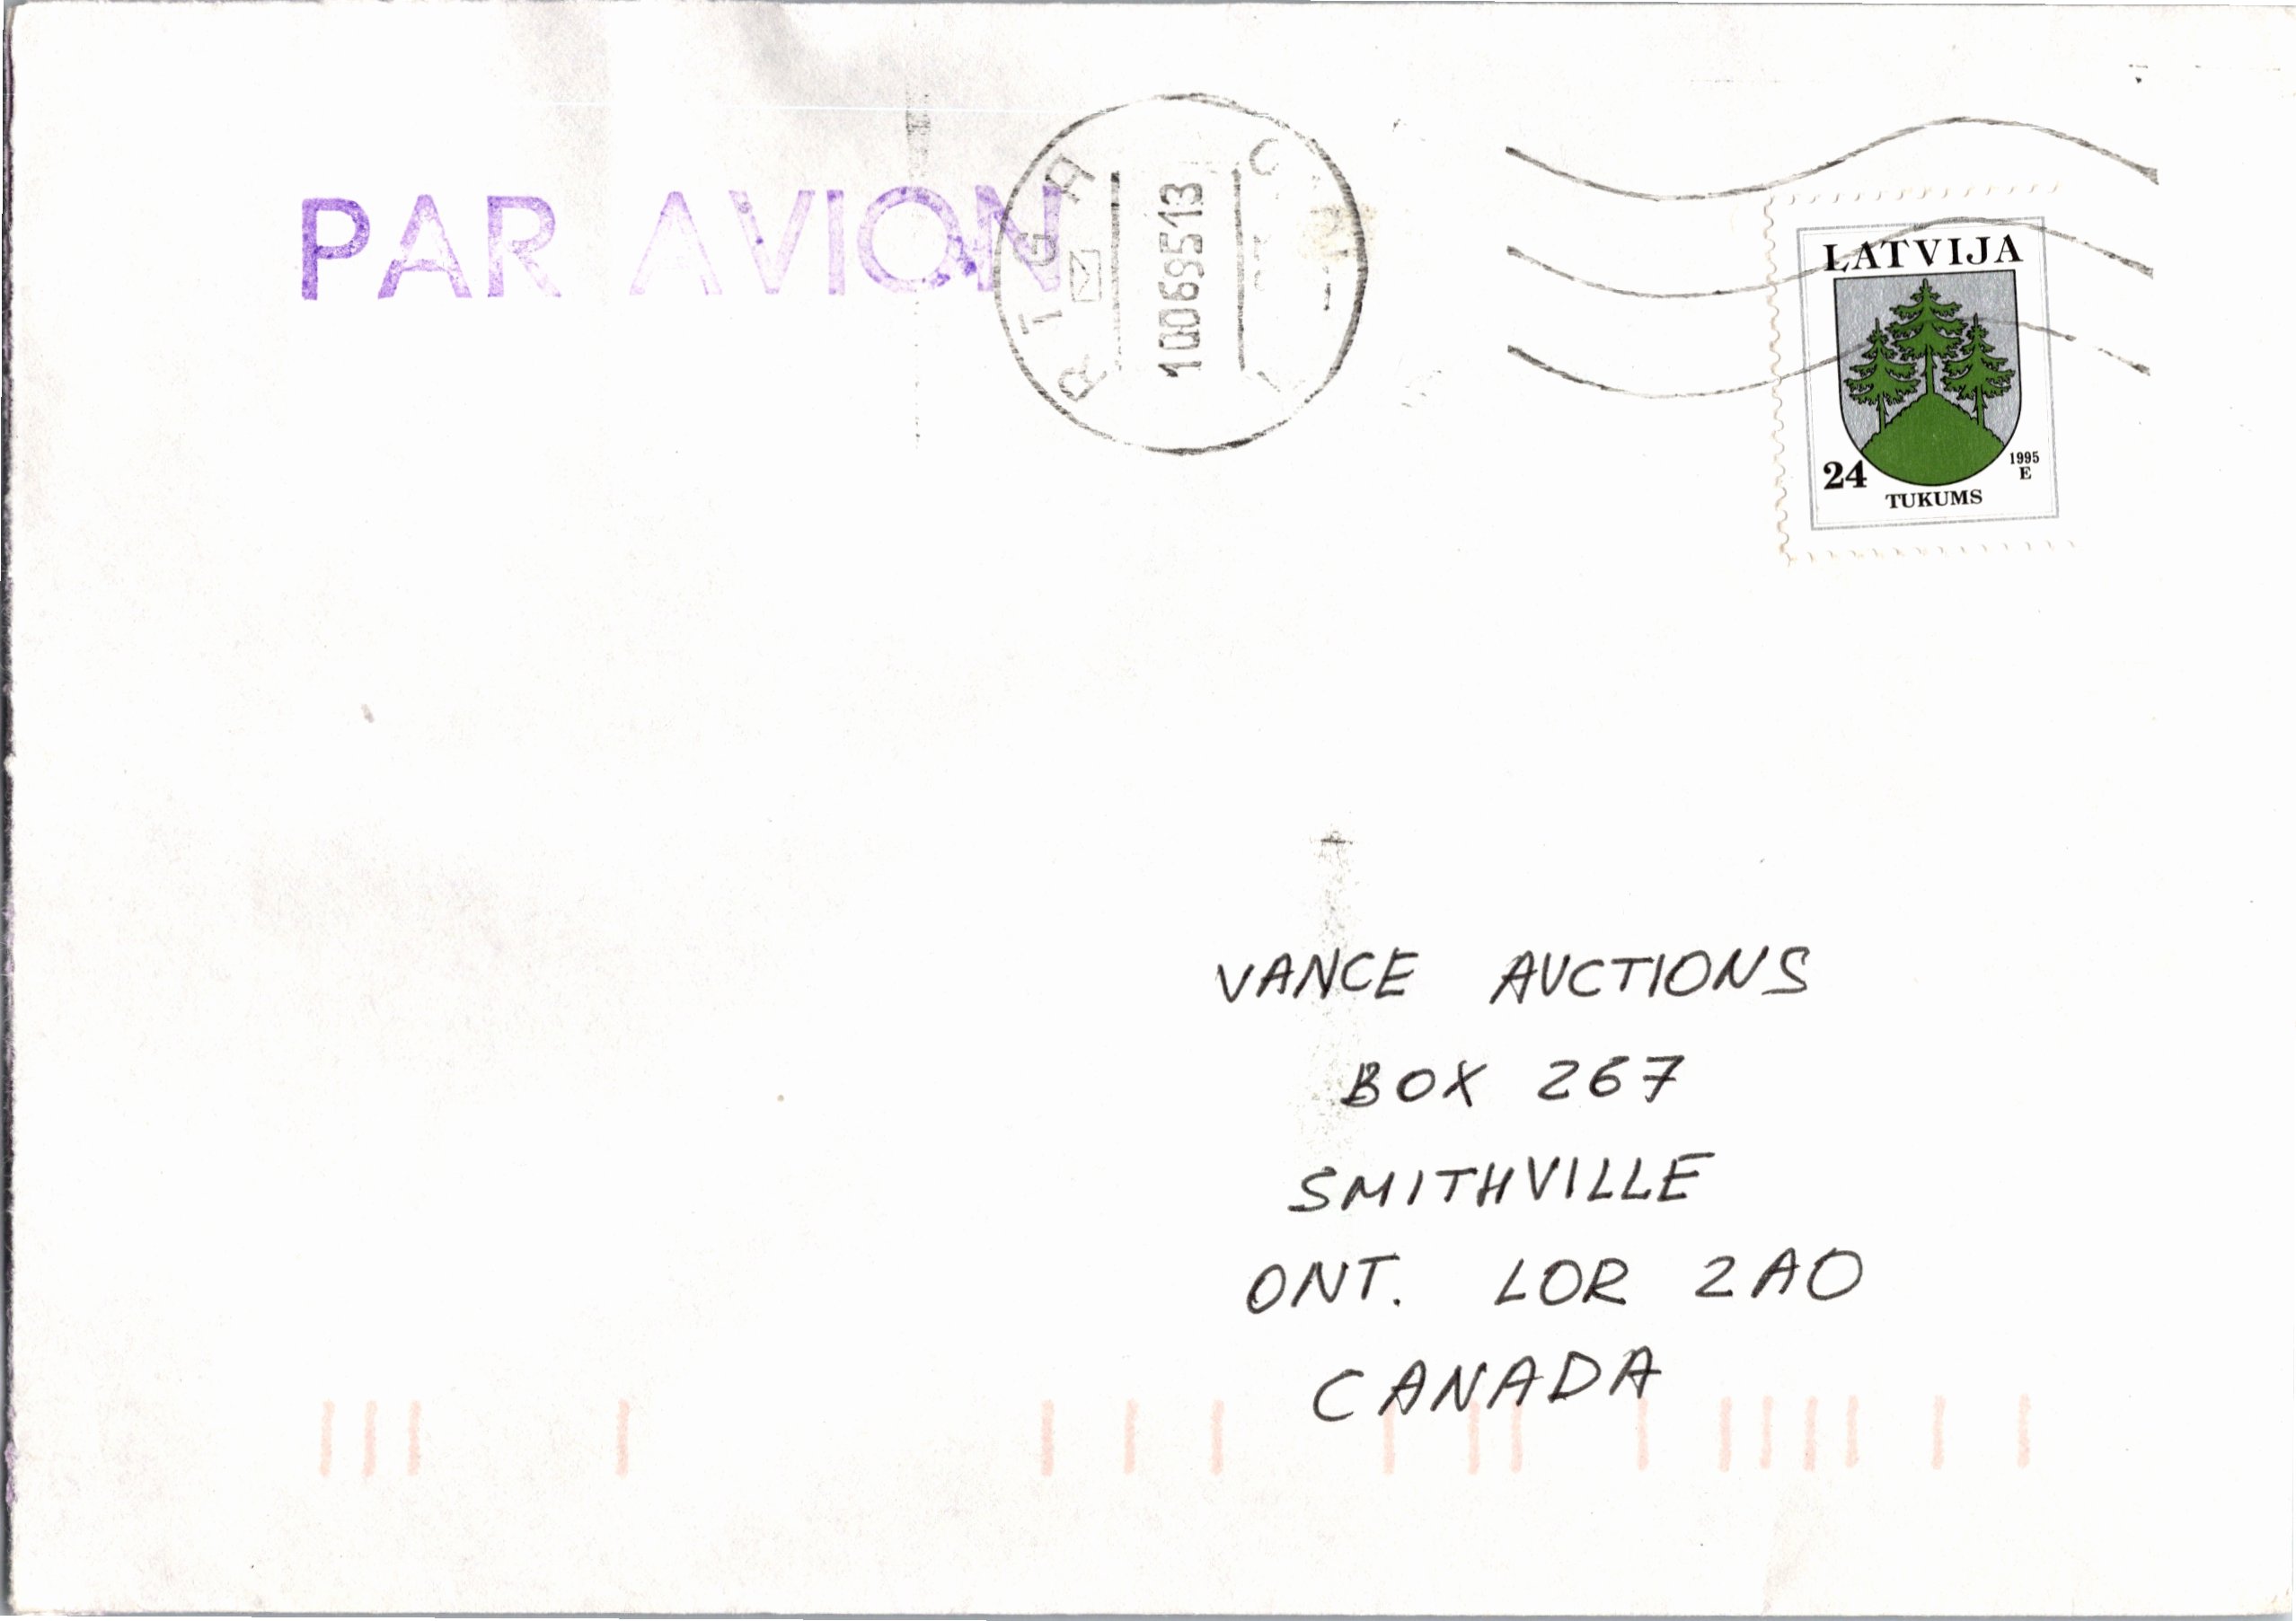 PAR AVION
RĪGA
10069513
LATVIJA
24
1995
E
TUKUMS
VANCE AUCTIONS
BOX 267
SMITHVILLE
ONT. LOR 2AO
CANADA